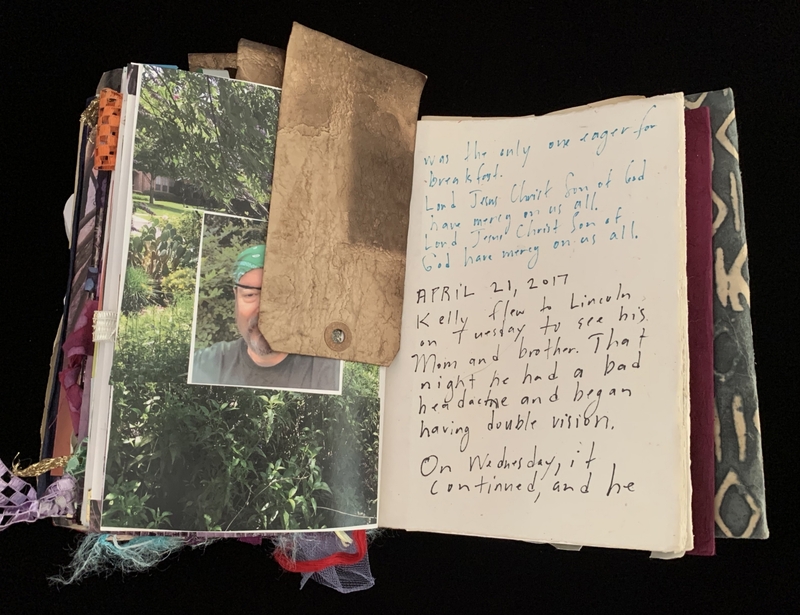 was the only one eager for
breakfast.
Lord Jesus Christ Son of God
have mercy on us all.
Lord, Jesus Christ Son of
God have mercy on us all.
APRIL 21, 2017
Kelly flew to Lincoln
on Tuesday to see his
Mom and brother. That
night he had a bad
headache and began
having double vision.
On Wednesday, it
continued, and he